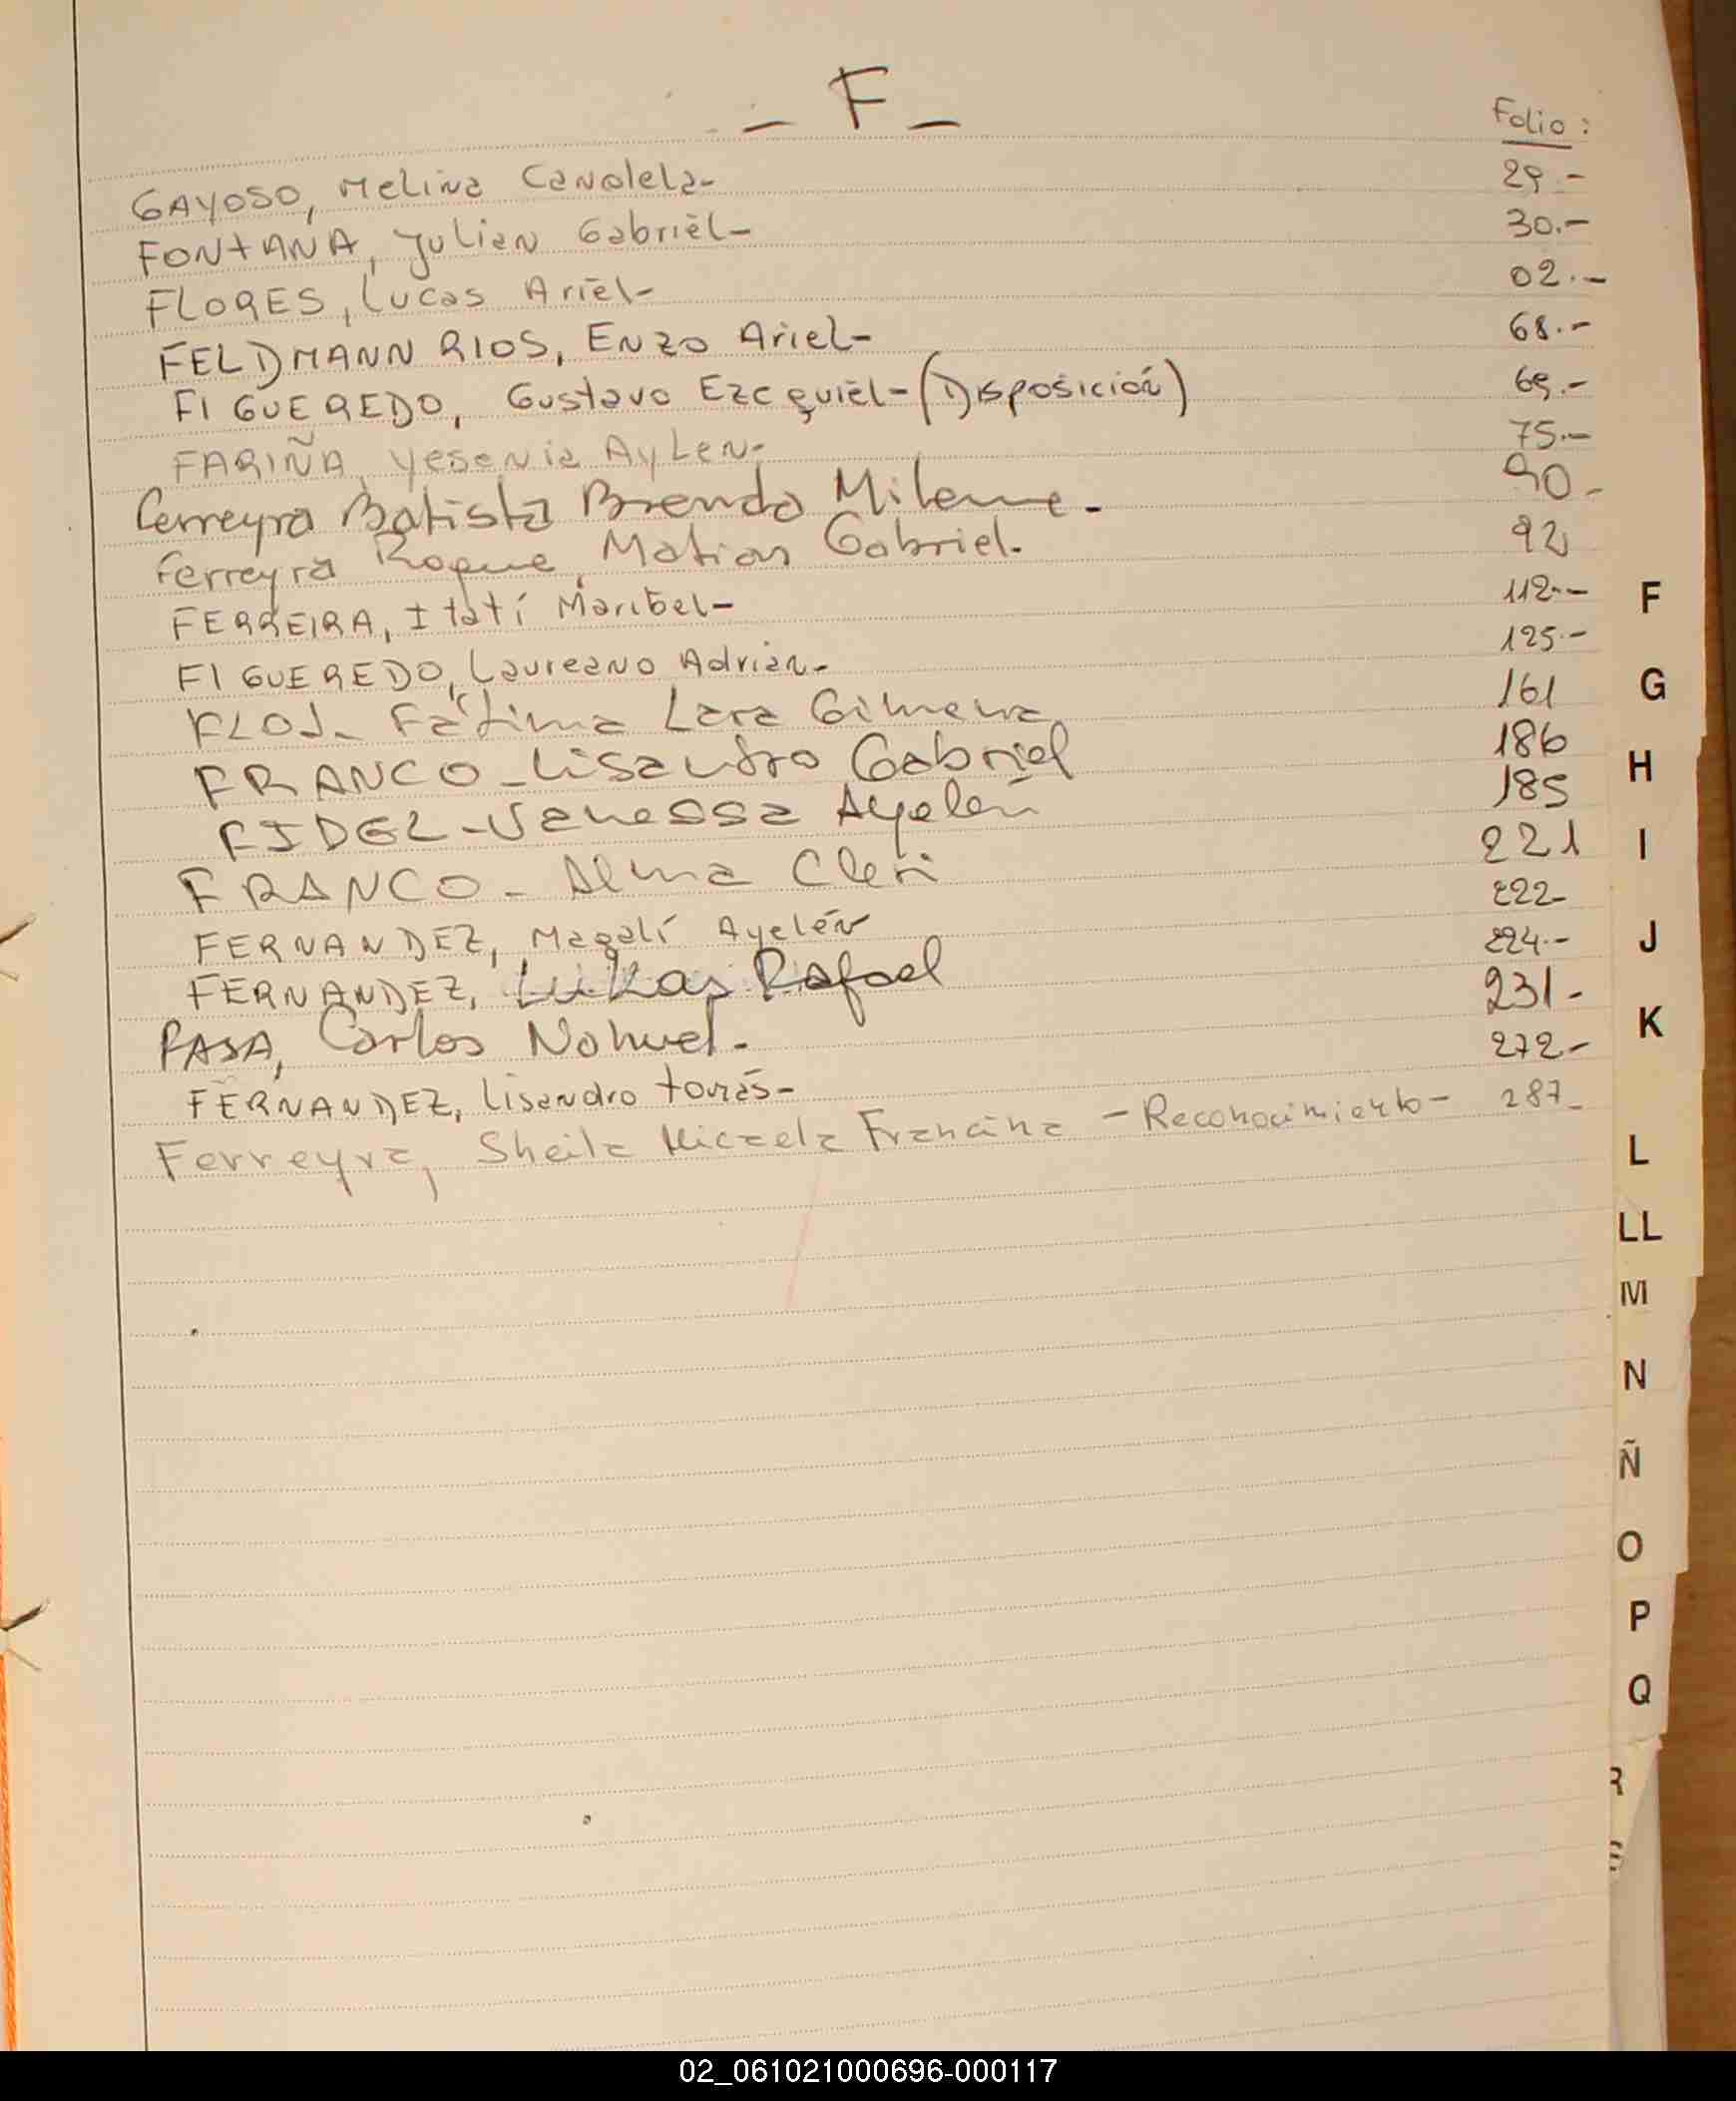 - F -
Folio:
GAYOSO, Melina Candela- 29.-
FONTANA, Julian Gabriel- 30.-
FLORES, Lucas Ariel- 02.-
FELDMANN RIOS, Enzo Ariel- 68.-
FIGUEREDO, Gustavo Ezequiel-(Disposición) 69.-
FARIÑA, Yesenia Aylen- 75.-
Ferreyra Batista Brenda Milene.- 90.-
Ferreyra Roque, Matias Gabriel.- 92
FERREIRA, Itatí Maribel- 112.-
FIGUEREDO, Laureano Adrian.- 125.-
FLOJ- Fátima Lara Gimena 161
FRANCO-Lisandro Gabriel 186
FIDEL-Vanessa Ayelén 185
FRANCO-Alma 221
FERNANDEZ, Magalí Ayelén 222-
FERNANDEZ, Lukas Rafael 224.-
Carlos Nahuel.- 231-
FERNANDEZ, Lisandro Tomás- 272-
Ferreyra, Sheila Micaela Francina -Reconocimiento- 287-
F
G
H
I
J
K
L
LL
M
N
Ñ
O
P
Q
R
02_061021000696-000117